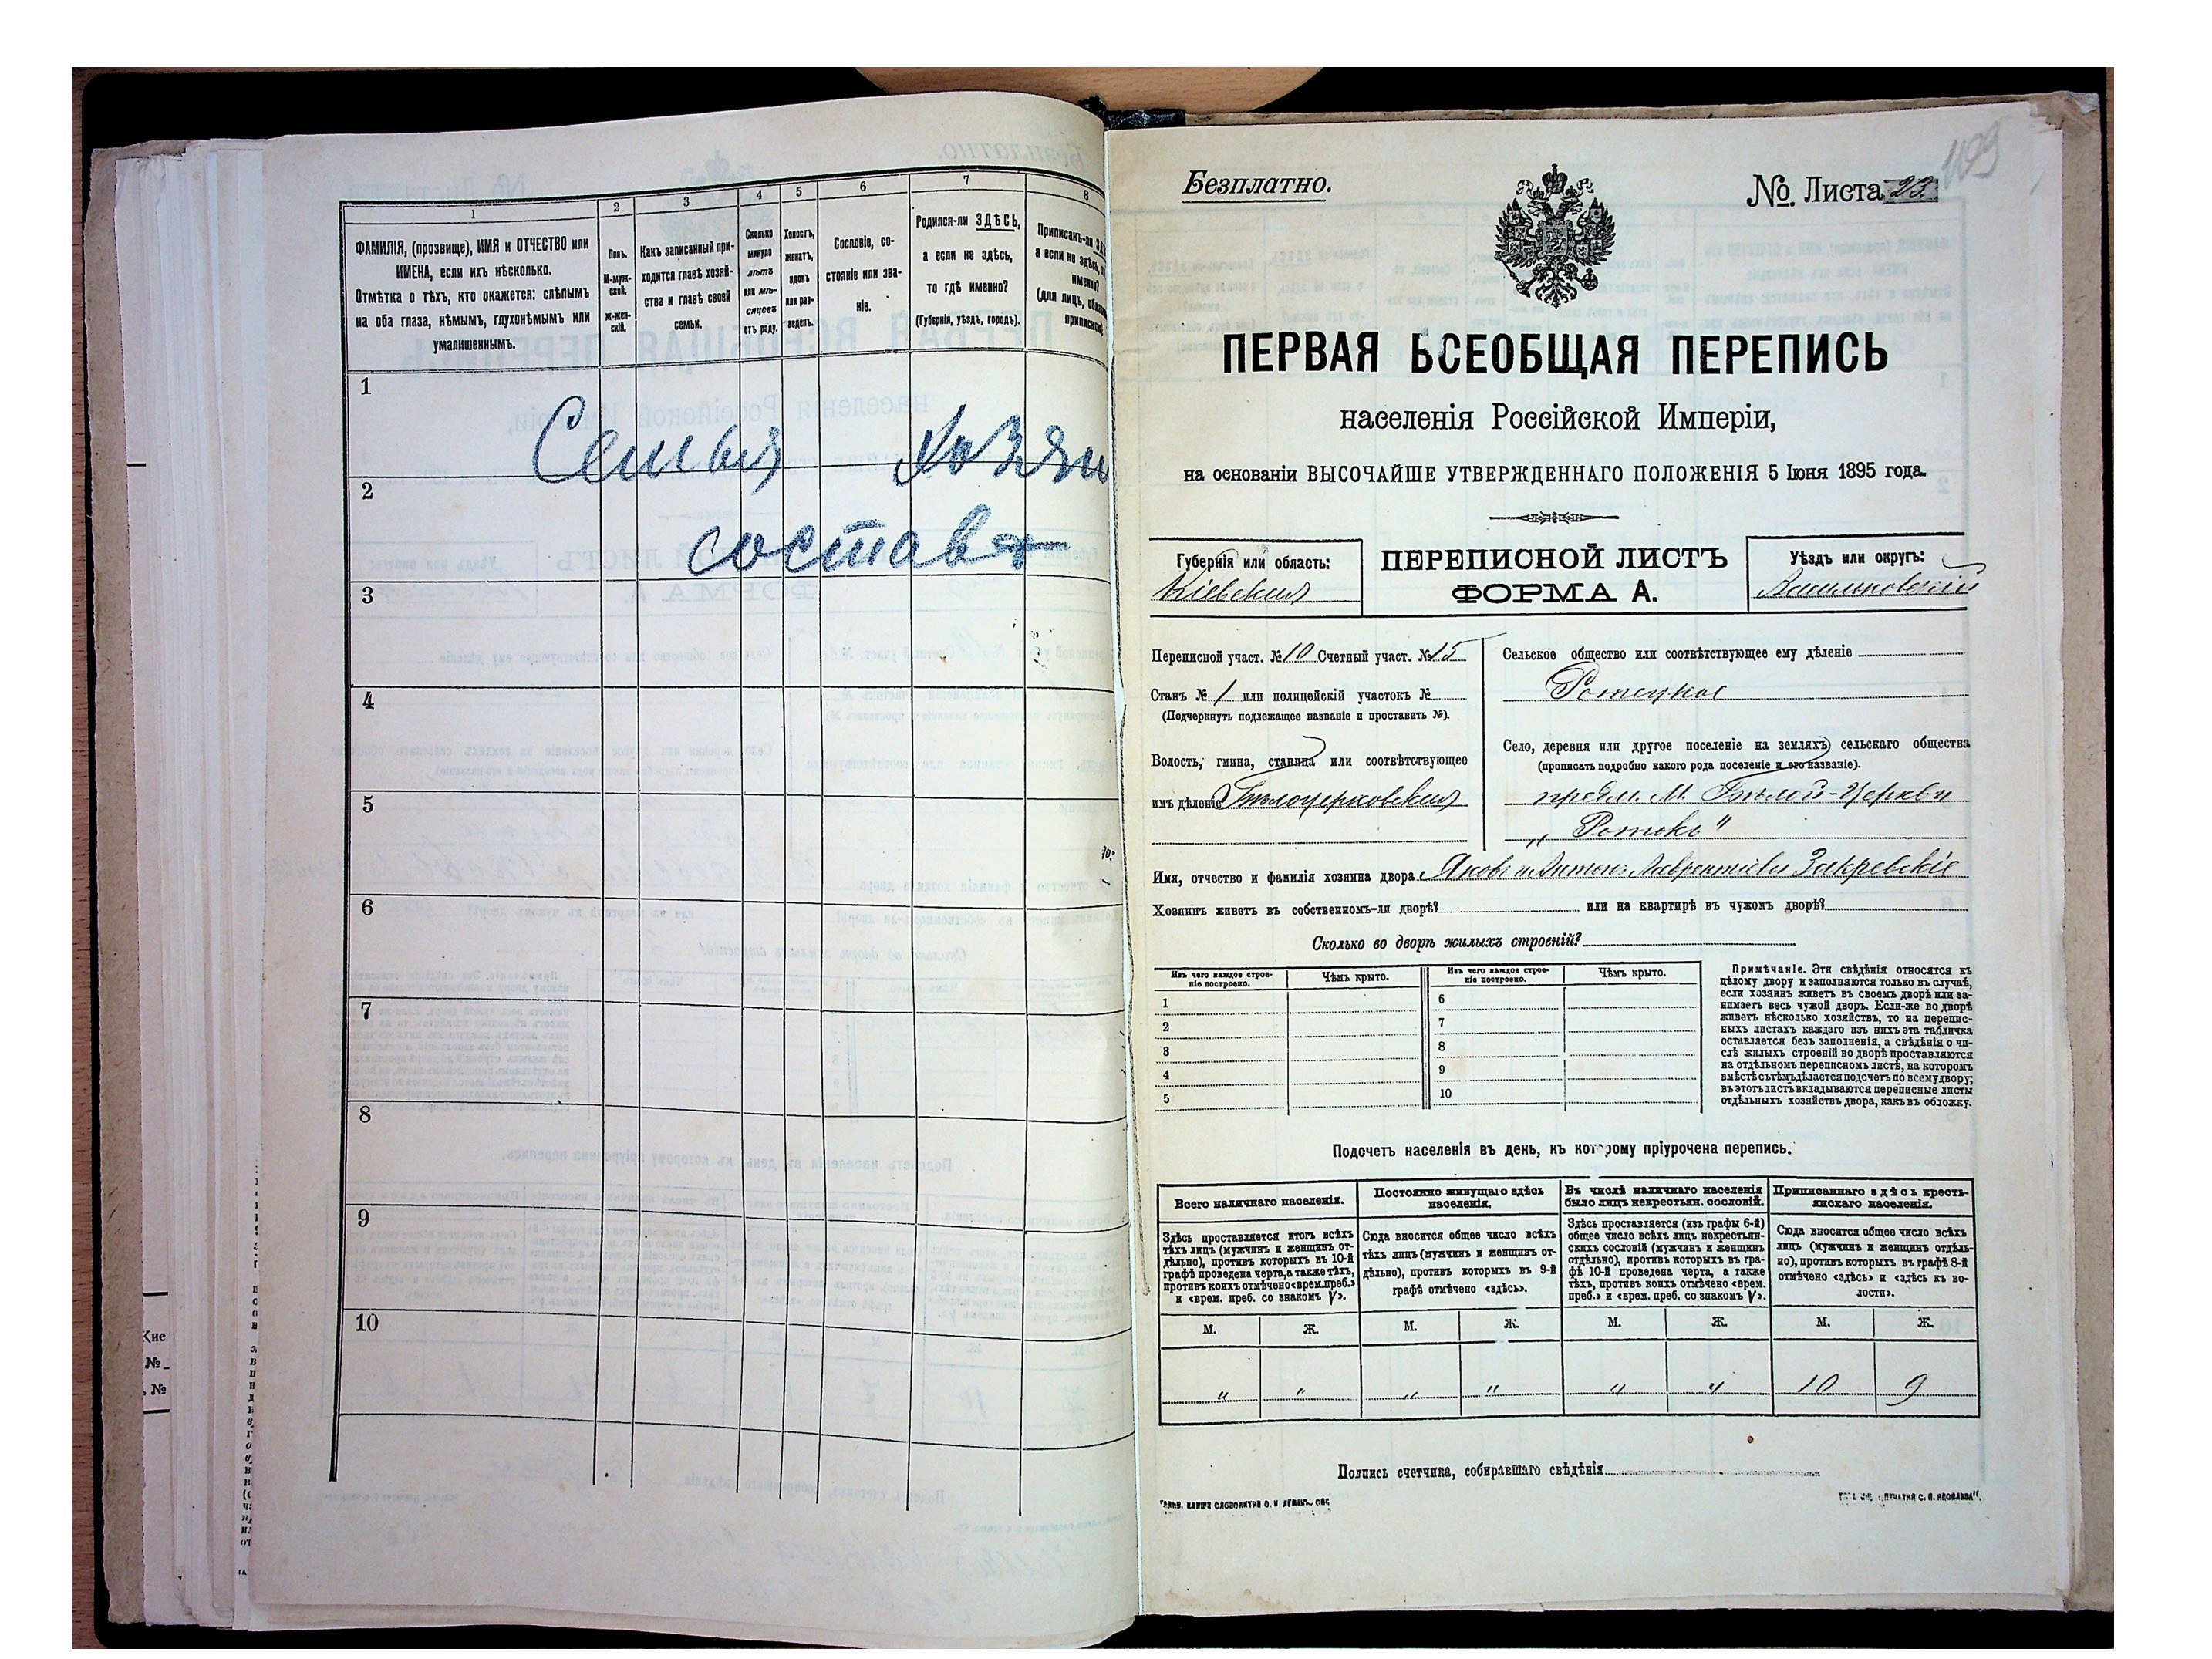 1
2
3
4
5
6
7
8
ФАМИЛІЯ, (прозвище), ИМЯ и ОТЧЕСТВО или
ИМЕНА, если ихъ нѣсколько.
Отмѣтка о тѣхъ, кто окажется: слѣпымъ
на оба глаза, нѣмымъ, глухонѣмымъ или
умалишеннымъ.
Полъ.
М-муж-
ской.
ж-жен-
скій.
Какъ записанный при-
ходится главѣ хозяй-
ства и главѣ своей
семьи.
Сколько
минуло
лѣтъ
или мѣ-
сяцевъ
отъ роду.
Холостъ,
женатъ,
вдовъ
или раз-
веденъ.
Сословіе, со-
стояніе или зва-
ніе.
Родился-ли ЗДѢСЬ,
а если не здѣсь,
то гдѣ именно?
(Губернія, уѣздъ, городъ).
Приписанъ-ли
а если не здѣсь,
именно?
(для лицъ,
1
Семья хозяи
2
состав
3
4
5
6
7
8
9
10
Безплатно.
№ Листа 23.
ПЕРВАЯ ВСЕОБЩАЯ ПЕРЕПИСЬ
населенія Россійской Имперіи,
на основаніи ВЫСОЧАЙШЕ УТВЕРЖДЕННАГО ПОЛОЖЕНІЯ 5 Іюня 1895 года.
Губернія или область:
Кіевская
ПЕРЕПИСНОЙ ЛИСТЪ
ФОРМА А.
Уѣздъ или округъ:
Васильковскій
Переписной участ. № 10 Счетный участ. № 15
Станъ № 1 или полицейскій участокъ №
(Подчеркнуть подлежащее названіе и проставить №).
Волость, гмина, станица или соотвѣтствующее
имъ дѣленіе Бѣлоцерковская
Сельское общество или соотвѣтствующее ему дѣленіе
Ротоцкое
Село, деревня или другое поселеніе на земляхъ сельскаго общества
(прописать подробно какого рода поселеніе и его названіе).
предм. М. Бѣлой-Церкви
„Ротокъ"
Имя, отчество и фамилія хозяина двора. Яковъ и Антонъ Лаврентіевы Закревскіе
Хозяинъ живетъ въ собственномъ-ли дворѣ? или на квартирѣ въ чужомъ дворѣ?
Сколько во дворѣ жилыхъ строеній?
Изъ чего каждое строе-
ніе построено.
Чѣмъ крыто.
1
2
3
4
5
Изъ чего каждое строе-
ніе построено.
Чѣмъ крыто.
6
7
8
9
10
Примѣчаніе. Эти свѣдѣнія относятся къ
цѣлому двору и заполняются только въ случаѣ,
если хозяинъ живетъ въ своемъ дворѣ или за-
нимаетъ весь чужой дворъ. Если-же во дворѣ
живетъ нѣсколько хозяйствъ, то на перепис-
ныхъ листахъ каждаго изъ нихъ эта табличка
оставляется безъ заполненія, а свѣдѣнія о чи-
слѣ жилыхъ строеній во дворѣ проставляются
на отдѣльномъ переписномъ листѣ, на которомъ
вмѣстѣ съ тѣмъ дѣлается подсчетъ по всему двору;
въ этотъ листъ вкладываются переписные листы
отдѣльныхъ хозяйствъ двора, какъ въ обложку.
Подсчетъ населенія въ день, къ которому пріурочена перепись.
Всего наличнаго населенія.
Здѣсь проставляется итогъ всѣхъ
тѣхъ лицъ (мужчинъ и женщинъ от-
дѣльно), противъ которыхъ въ 10-й
графѣ проведена черта, а также тѣхъ,
противъ коихъ отмѣчено «врем. преб.»
и «врем. преб. со знакомъ V».
Постоянно живущаго здѣсь
населенія.
Сюда вносится общее число всѣхъ
тѣхъ лицъ (мужчинъ и женщинъ от-
дѣльно), противъ которыхъ въ 9-й
графѣ отмѣчено «здѣсь».
Въ числѣ наличнаго населенія
было лицъ некрестьян. сословій.
Здѣсь проставляется (изъ графы 6-й)
общее число всѣхъ лицъ некрестьян-
скихъ сословій (мужчинъ и женщинъ
отдѣльно), противъ которыхъ въ гра-
фѣ 10-й проведена черта, а также
тѣхъ, противъ коихъ отмѣчено «врем.
преб.» и «врем. преб. со знакомъ V».
Приписаннаго здѣсь кресть-
янскаго населенія.
Сюда вносится общее число всѣхъ
лицъ (мужчинъ и женщинъ отдѣль-
но), противъ которыхъ въ графѣ 8-й
отмѣчено «здѣсь» и «здѣсь къ во-
лости».
М. Ж. М. Ж. М. Ж. М. Ж.
" " " " " " 10 9
Подпись счетчика, собиравшаго свѣдѣнія